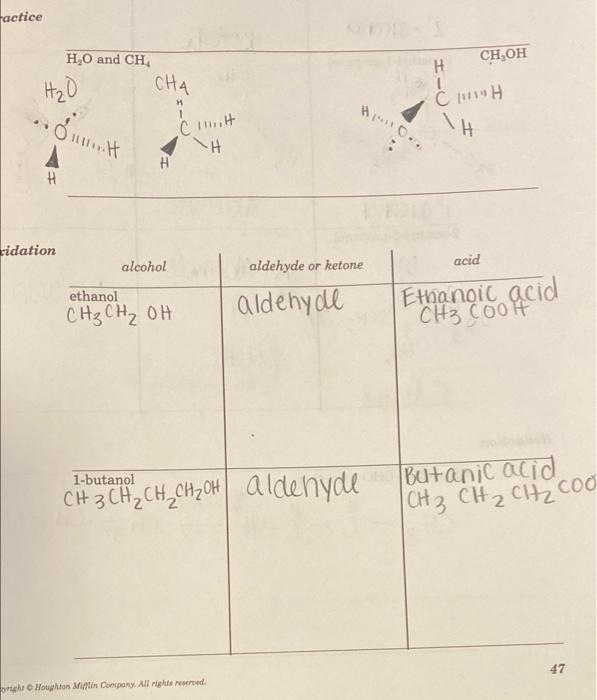 ractice
H₂O and CH₄
CH₃OH
H₂O
CH4
H
O
H
H
H
C
H
H
H
H
C
H
H
H
O
xidation
alcohol
aldehyde or ketone
acid
ethanol
CH₃CH₂ OH
aldehyde
Ethanoic acid
CH3 COOH
1-butanol
CH3CH₂CH₂CH₂OH
aldehyde
Butanic acid
CH3 CH₂ CH₂ COO
47
pyright © Houghton Mifflin Company. All rights reserved.